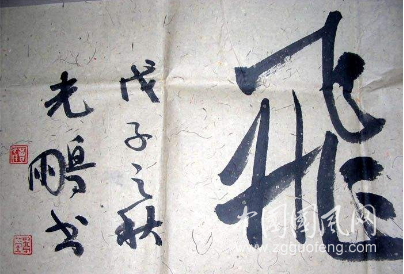 飛
戊子之秋
光鵬书
中国国风网
www.zgguofeng.com